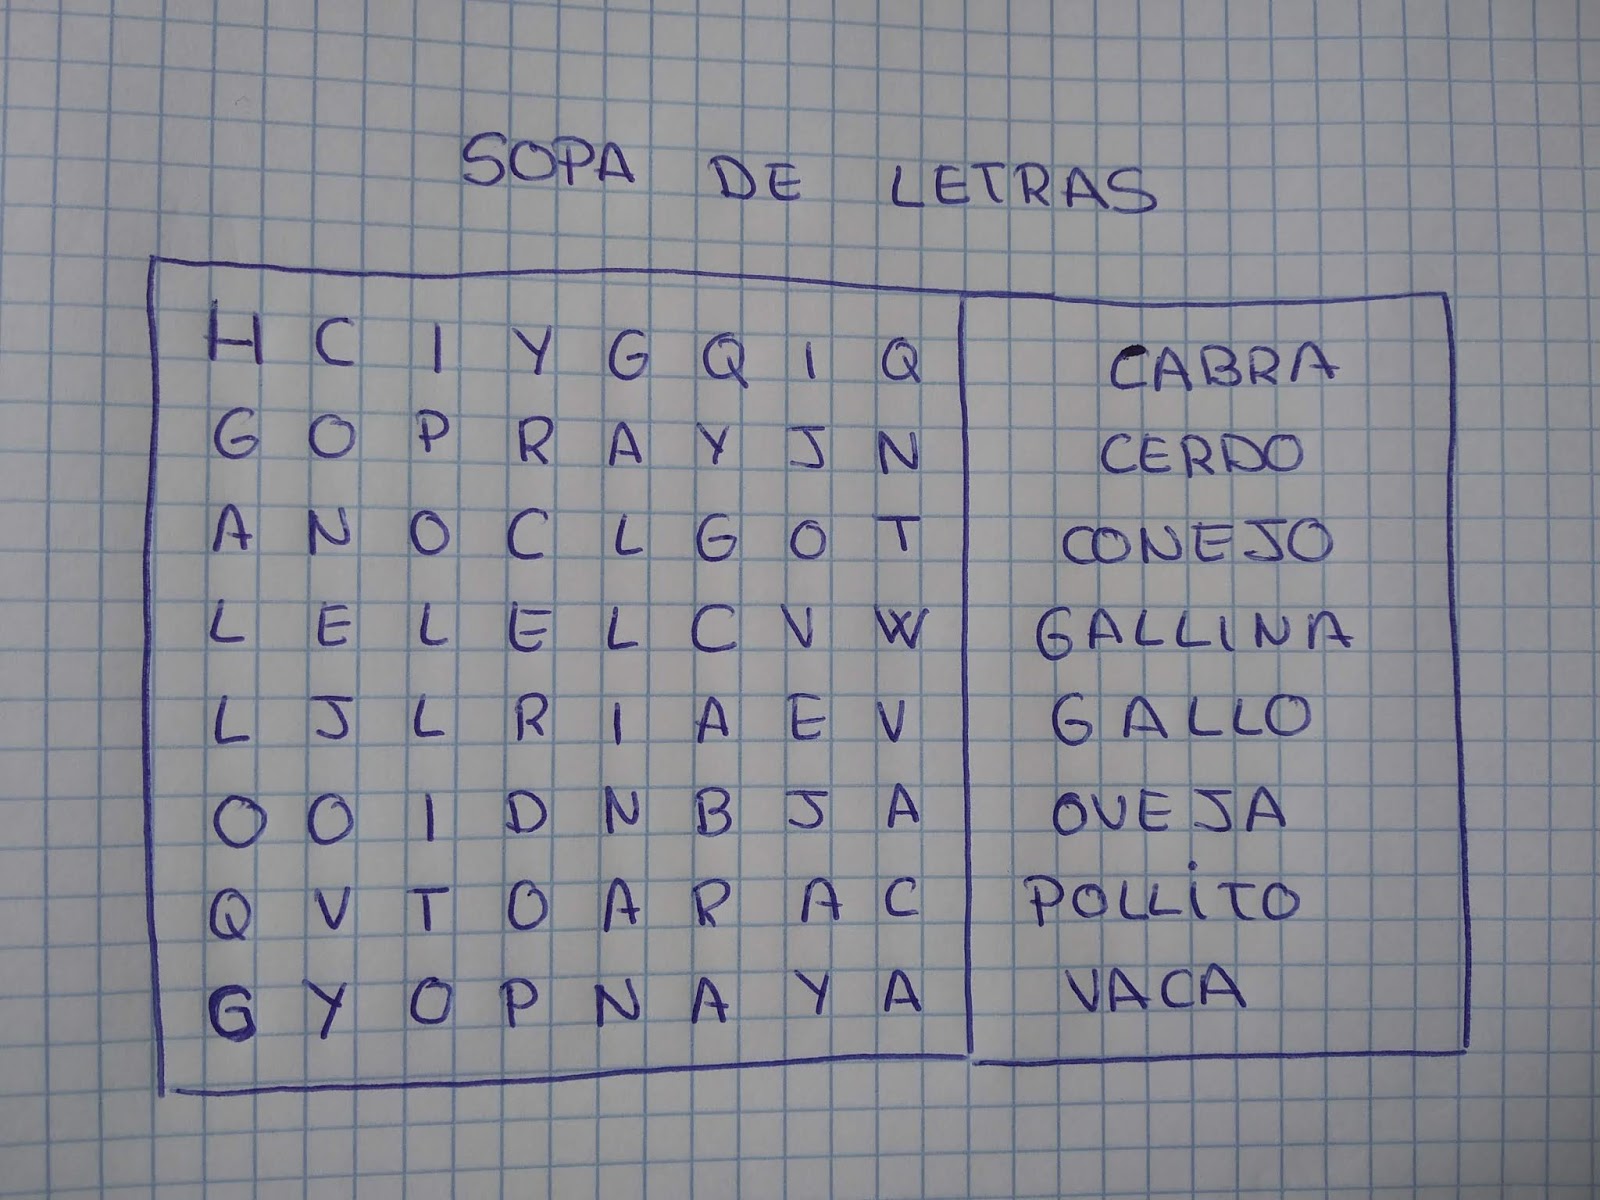 SOPA DE LETRAS
H C I Y G Q I Q
G O P R A Y J N
A N O C L G O T
L E L E L C V W
L J L R I A E V
O O I D N B J A
Q V T O A R A C
G Y O P N A Y A
CABRA
CERDO
CONEJO
GALLINA
GALLO
OVEJA
POLLITO
VACA